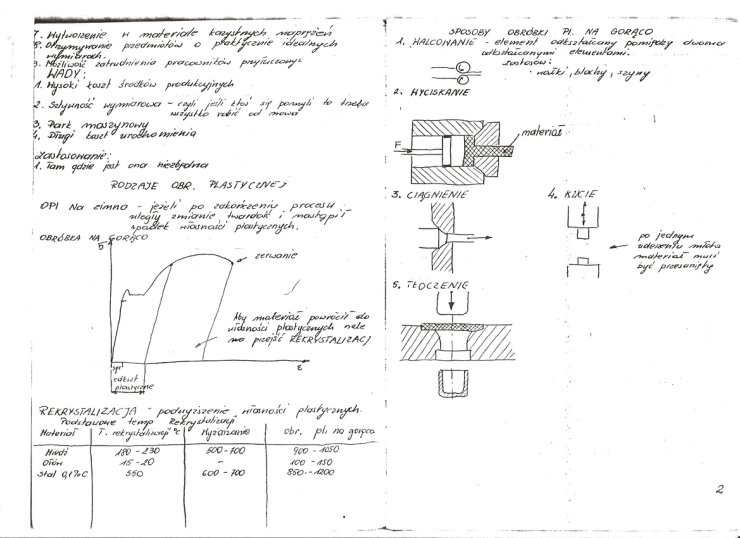 7. Wytworzenie w materiale korzystnych naprężeń
8. Otrzymywanie przedmiotów o praktycznie idealnych
wymiarach.
9. Możliwość zatrudnienia pracowników przyuczonych
WADY:
1. Wysoki koszt środków produkcyjnych
2. Sztywność wymiarowa - czyli jeśli ktoś się pomyli to trzeba
wszystko robić od nowa
3. Park maszynowy
4. Długi koszt uruchomienia
Zastosowanie:
1. Tam gdzie jest ona niezbędna
RODZAJE OBR. PLASTYCZNEJ
OPl Na zimno - jeżeli po zakończeniu procesu
uległy zmianie twardość i nastąpił
spadek własności plastycznych.
OBRÓBKA NA GORĄCO
σ
zerwanie
Aby materiał powrócił do
własności plastycznych
przejść REKRYSTALIZACJ
ε
spr
odkszt
plastyczne
REKRYSTALIZACJA - podwyższenie własności plastycznych.
Podstawowe temp Rekrystalizacji
Materiał T. rekrystalizacji °C Wyżarzanie obr. pl. na gorąco
Miedź 180 - 230 500 - 700 900 - 1050
Ołów 15 - 20 - 100 - 150
Stal 0,1%C 550 600 - 700 850 - 1200
SPOSOBY OBRÓBKI Pl. NA GORĄCO
1. WALCOWANIE - element odkształcany pomiędzy dwoma
odkształcanymi elementami.
blachy, szyny
2. WYCISKANIE
F
materiał
3. CIĄGNIENIE
4. KUCIE
po jednym
uderzeniu młota
materiał musi
być przesunięty
5. TŁOCZENIE
2